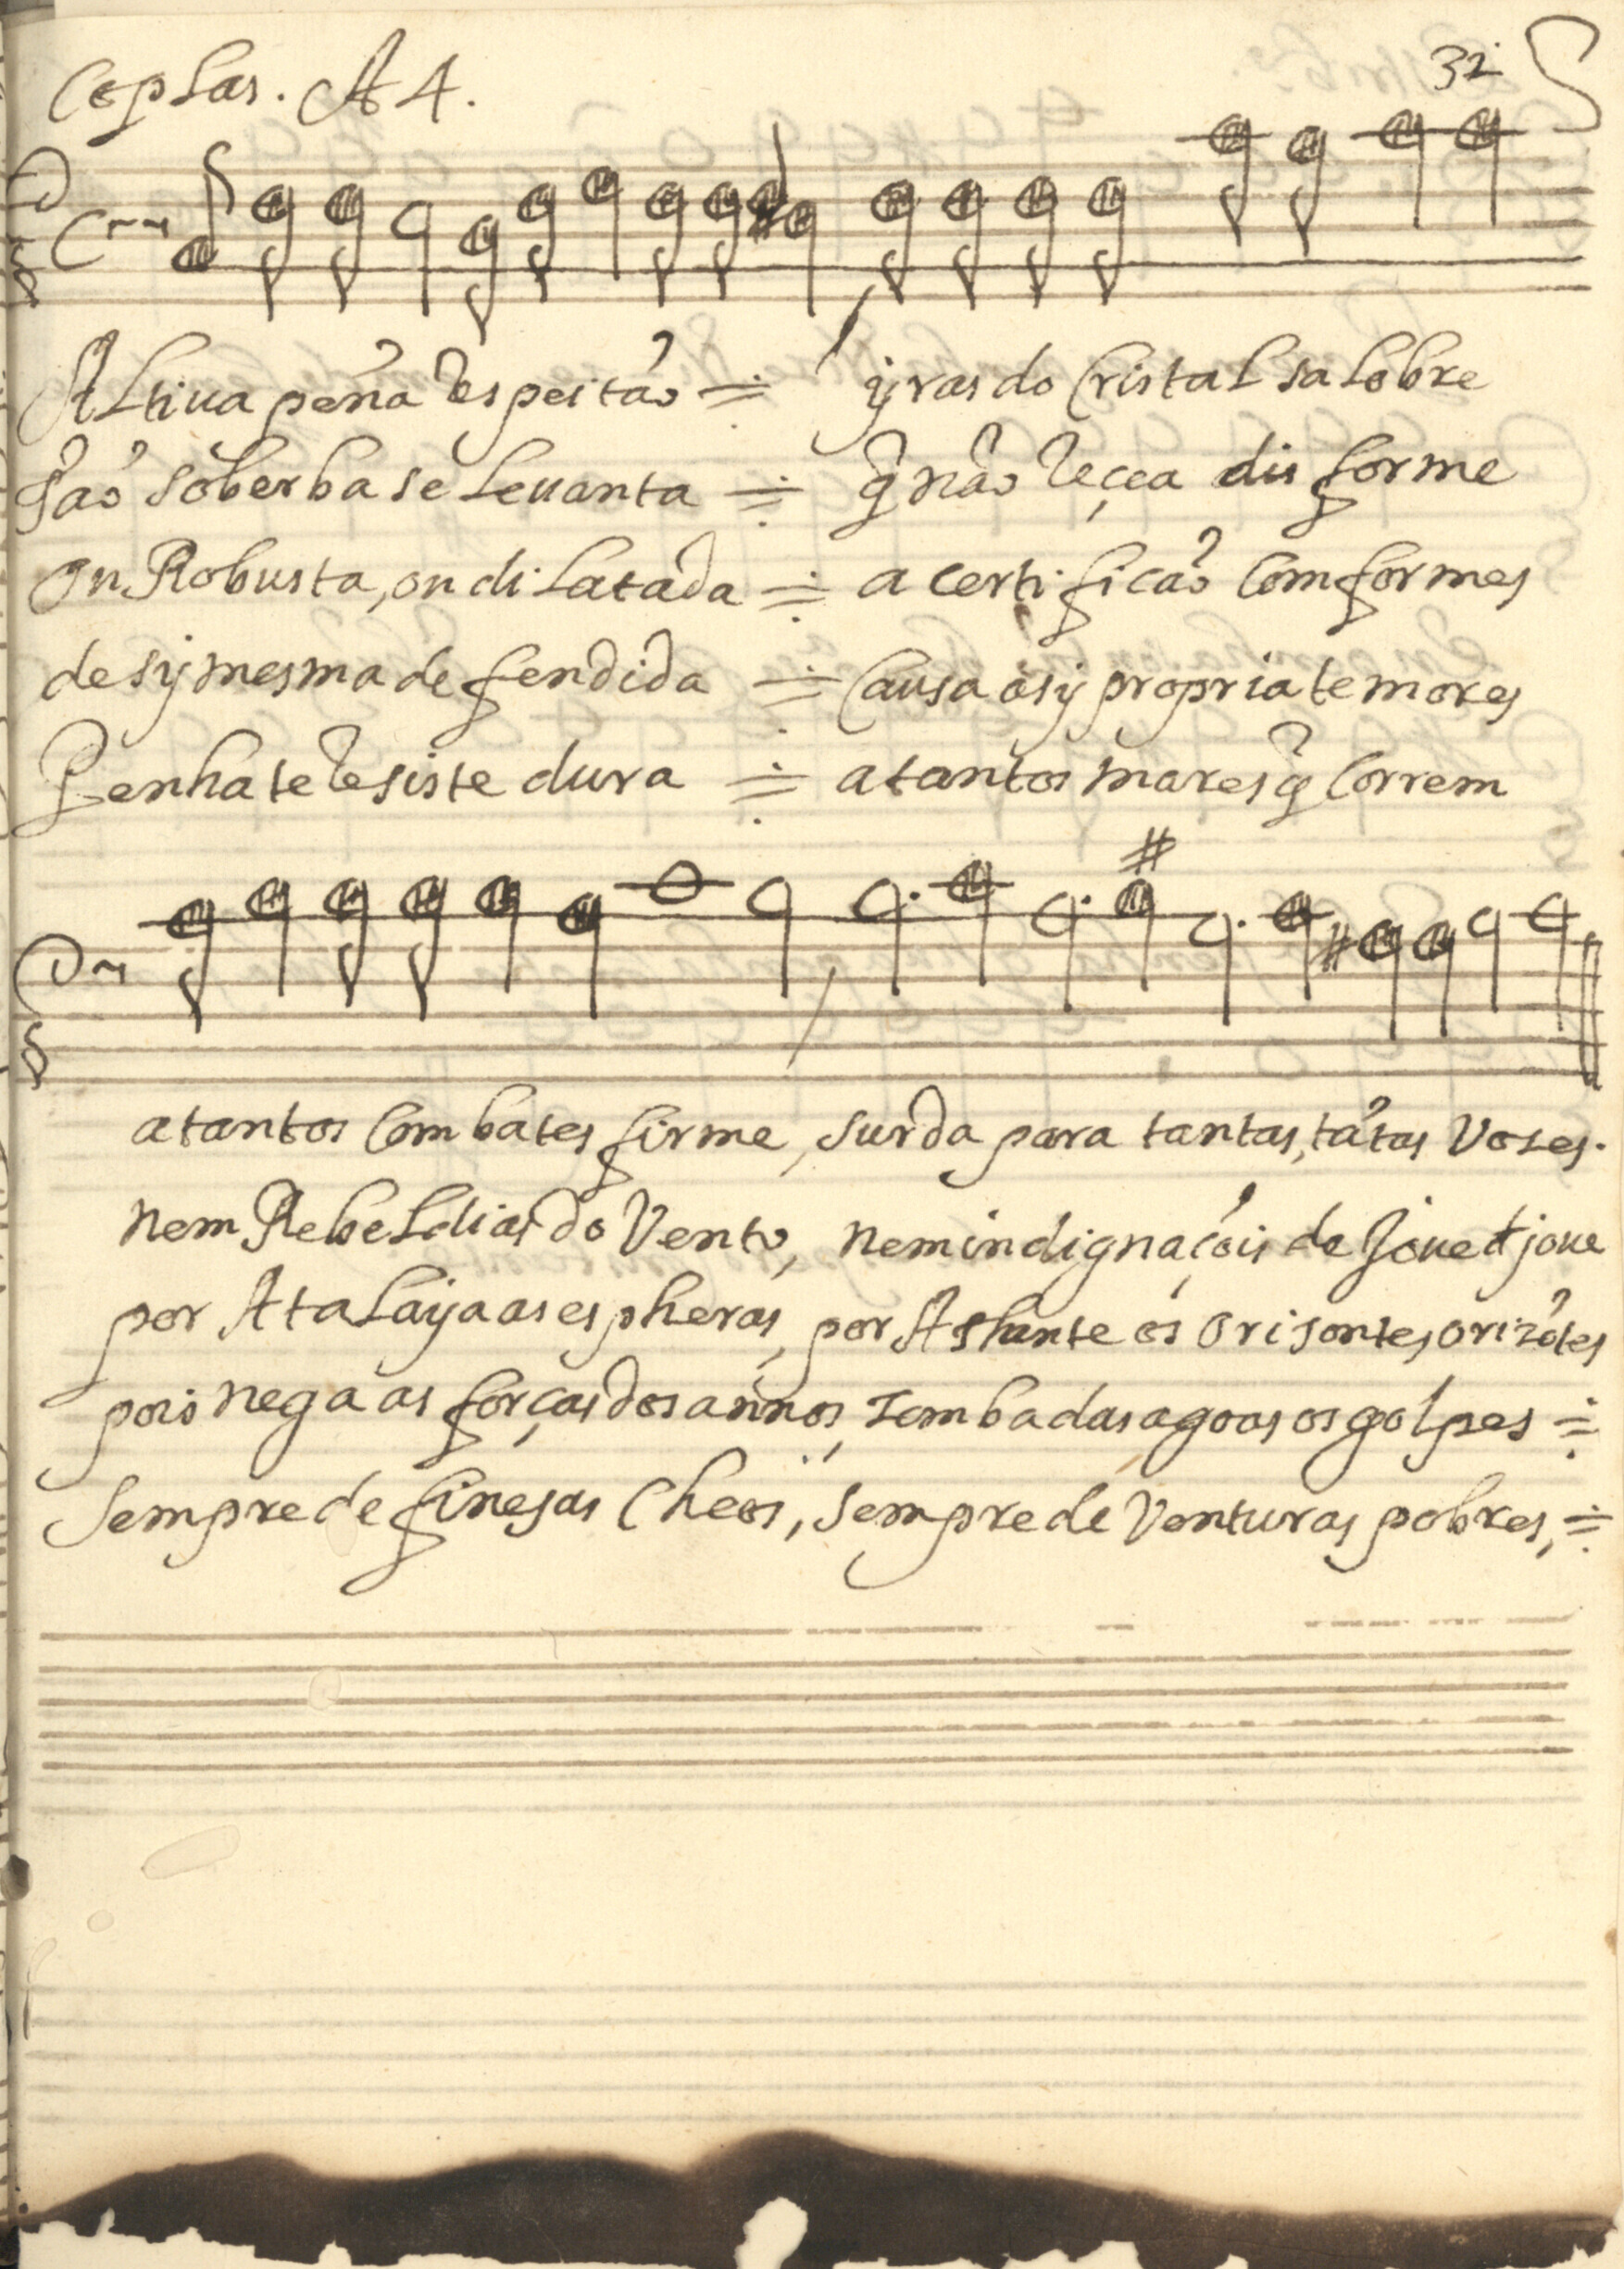 Coplas. A 4. 32
Altiua peña despeitão ÷ yras do Cristal salobre
q̃ não soberba se leuanta ÷ q̃ não deçea disforme
ou Robusta, ou dilatada ÷ a certificão Comformes
de sy mesma defendida ÷ Causa a sy propria temores
Penha te resiste dura ÷ a tantos mares q̃ Correm
a tantos Combates firme, surda para tantas, tãtas Vozes.
nem Rebeldias do Vento, nem indignaçõis de Joue d joue
por Atalaya as espheras, por Athlante os Orisontes orizõtes
pois nega as forças dos annos, zomba das agoas os golpes ÷
sempre de finezas Cheos, sempre de Venturas pobres, ÷